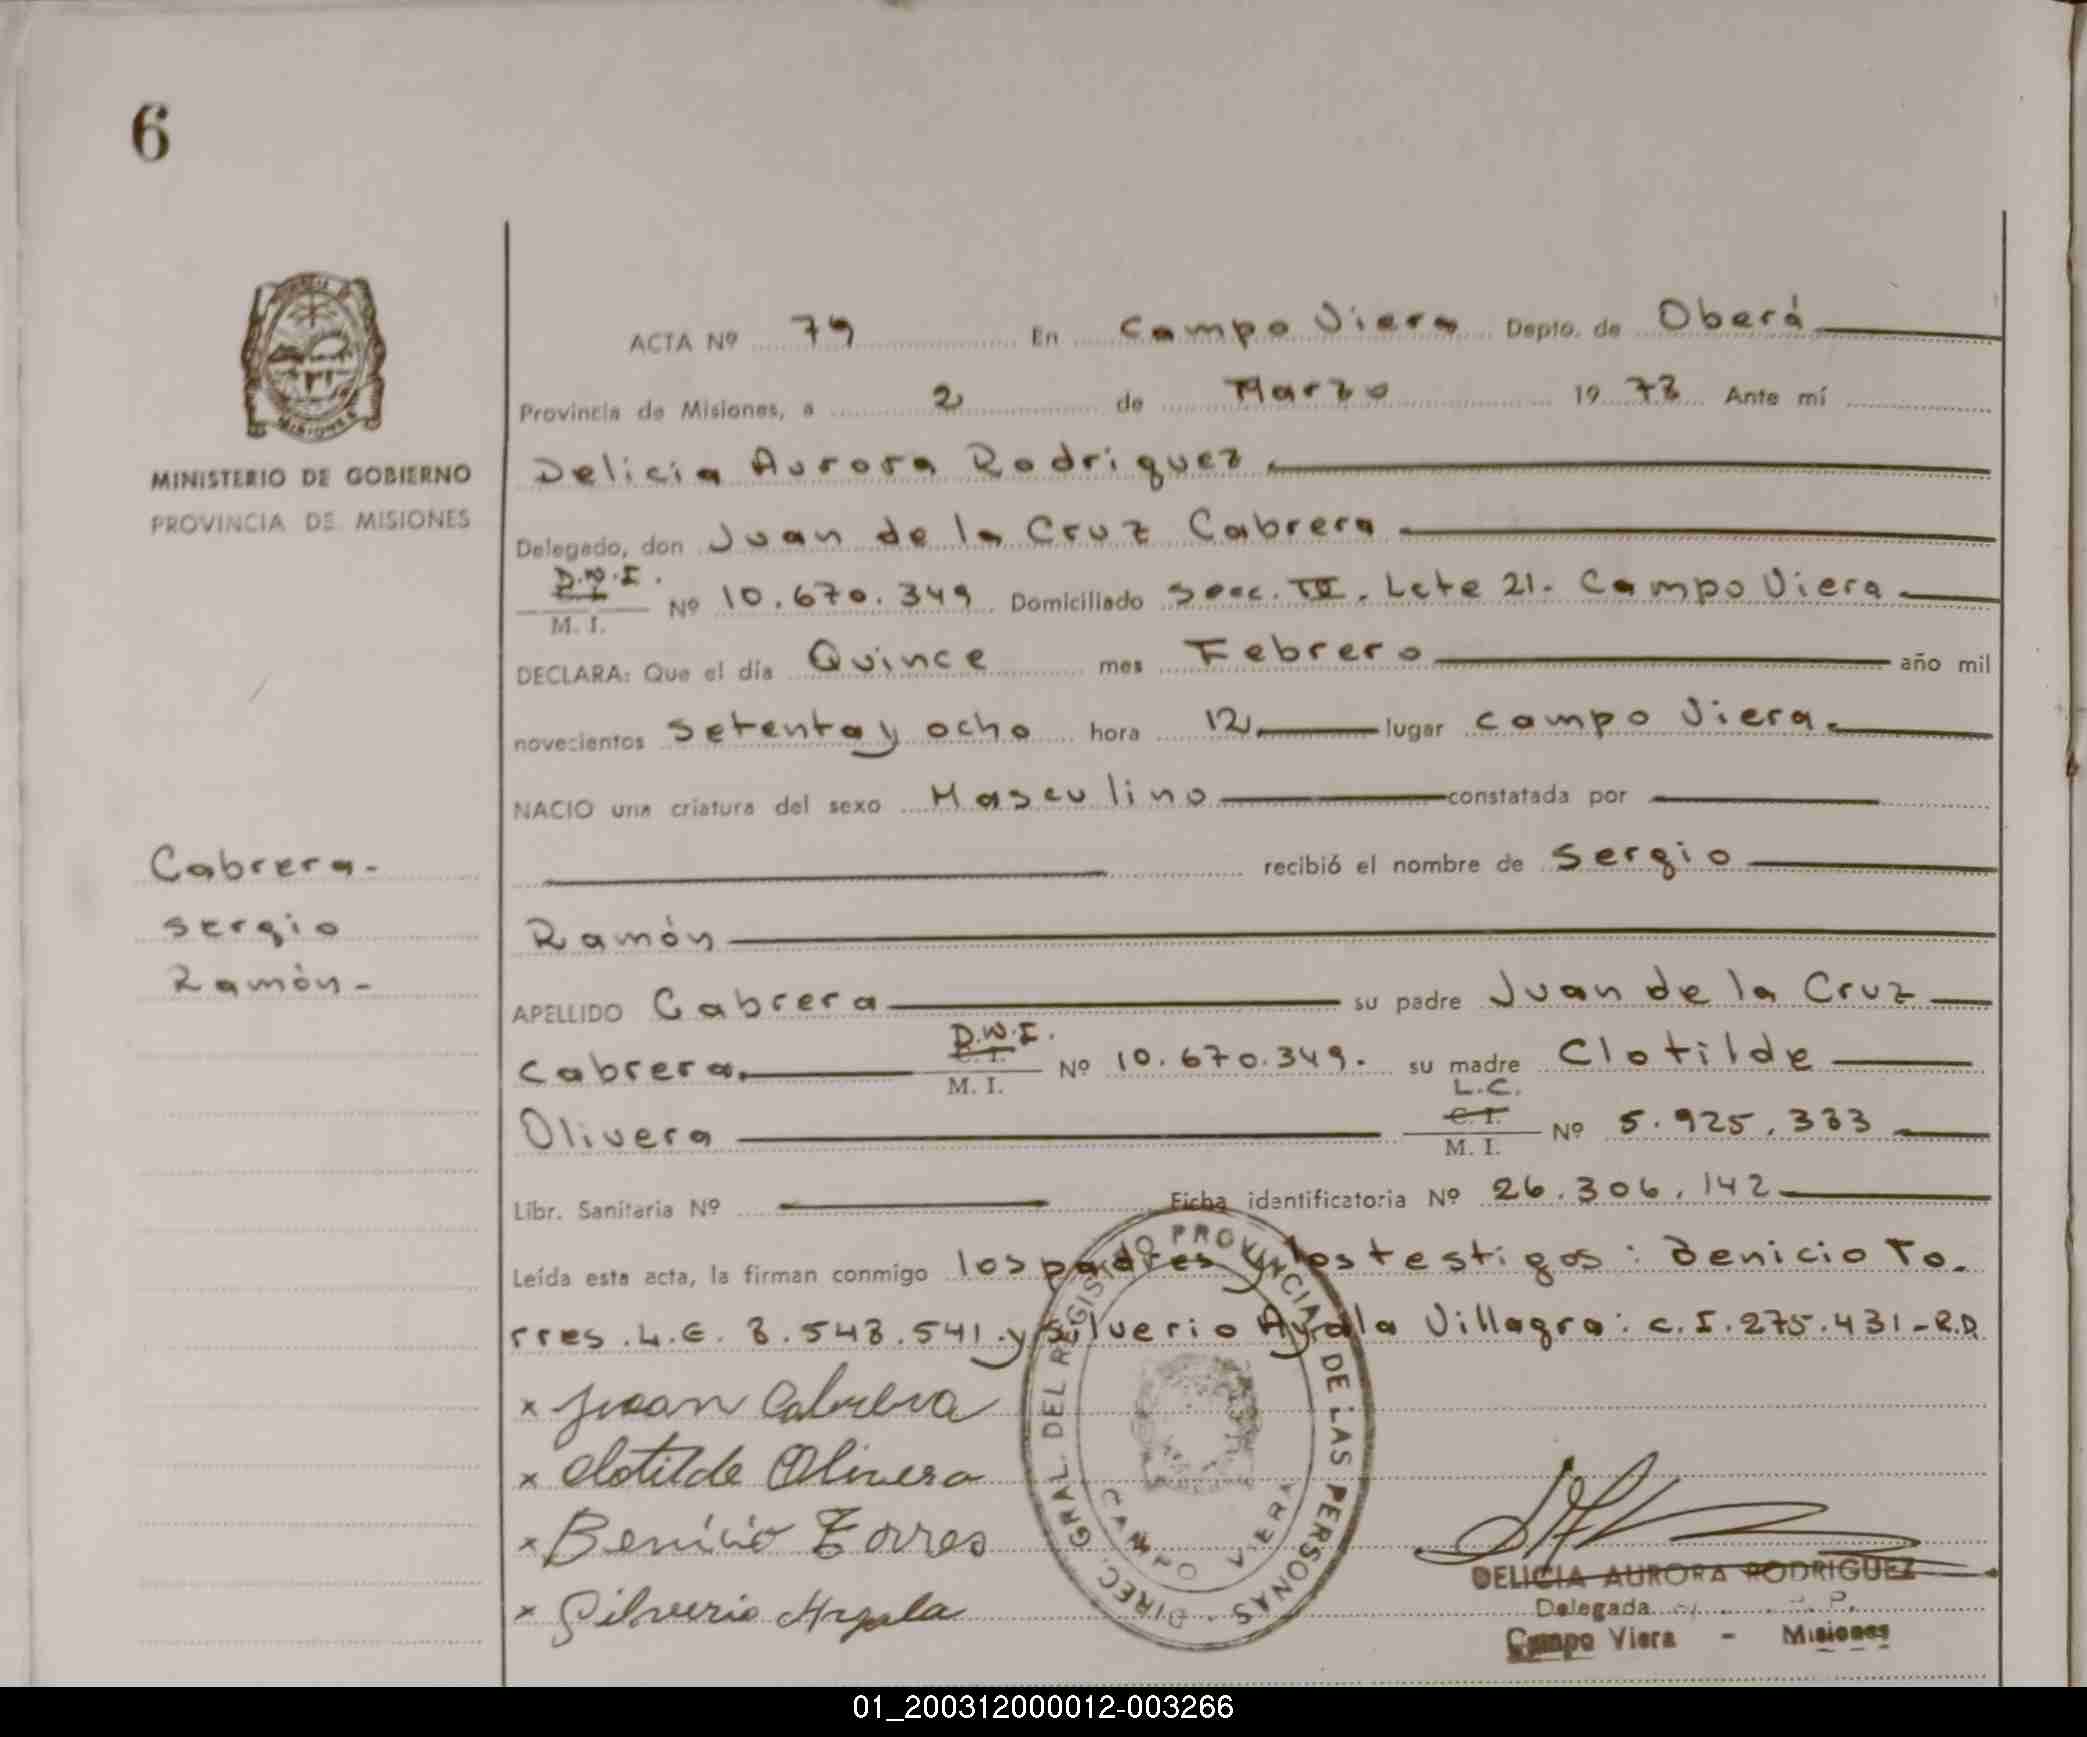 6
MISIONES
MINISTERIO DE GOBIERNO
PROVINCIA DE MISIONES
ACTA Nº 79 En Campo Viera Depto. de Oberá
Provincia de Misiones, a 2 de Marzo 19 78 Ante mí
Delicia Aurora Rodriguez
Delegado, don Juan de la Cruz Cabrera
D.N.I.
M. I. Nº 10.670.349 Domiciliado Secc. IV. Lote 21. Campo Viera
DECLARA: Que el día Quince mes Febrero año mil
novecientos setenta y ocho hora 12 lugar campo Viera.
NACIO una criatura del sexo Masculino constatada por
recibió el nombre de Sergio
Ramón
Cabrera-
Sergio
Ramón-
APELLIDO Cabrera su padre Juan de la Cruz
D.N.I.
Cabrera. M. I. Nº 10.670.349. su madre Clotilde
L.C.
C. I.
Olivera M. I. Nº 5.925.333
Libr. Sanitaria Nº Ficha identificatoria Nº 26.306.142
Leída esta acta, la firman conmigo los padres y los testigos: Benicio To-
rres. L.E. 3.543.541. y Silverio Ayala Villagra: C.I. 275.431-R.D.
x Juan Cabrera
x Clotilde Olivera
x Benicio Torres
x Silverio Ayala
DIREC. GRAL. DEL REGISTRO PROVINCIAL DE LAS PERSONAS
CAMPO VIERA
DELICIA AURORA RODRIGUEZ
Delegada
Campo Viera - Misiones
01_200312000012-003266